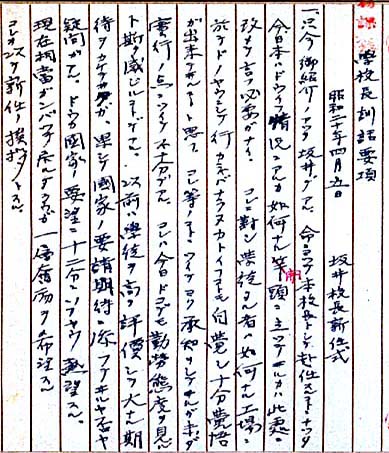 學校長訓話要項
昭和二十年四月五日　坂井校長新任式
一、只今御紹介ノアツタ坂井デアル、命ニヨツテ本校長トシテ赴任スルコトニナツタ
今日本ハドウイフ情況ニアルカ如何ナル岸頭ニ立ツテヰルカハ此処ニ
改メテ言フ必要ガナイ。コレニ對シ學徒タル者ハ如何ナル工場ニ
於テドノヤウニシテ行カネバナラヌカトイフコトモ自覺シ十分覺悟
ガ出来テヰルコトト思フ。コレ等ノコトニツイテヨク承知シテヰルガ未ダ
實行ノ点ニツイテ不十分デアル。コレハ今日ドコデモ勤勞態度ヲ見
ト斯ク感ジルコトデアル。以前ハ學徒ヲ高ク評價シテ大ナル期
待ヲカケタガ果シテ國家ノ要請期待ニ添フテヰルヤ否ヤ
疑問デアル。ドウカ國家ノ要望ニ十二分ニソフヤウ熱望スル。
現在相當ガンバツテ居ルデアラウガ一層奮励ヲ希望スル
コレヲ以テ新任ノ挨拶トスル